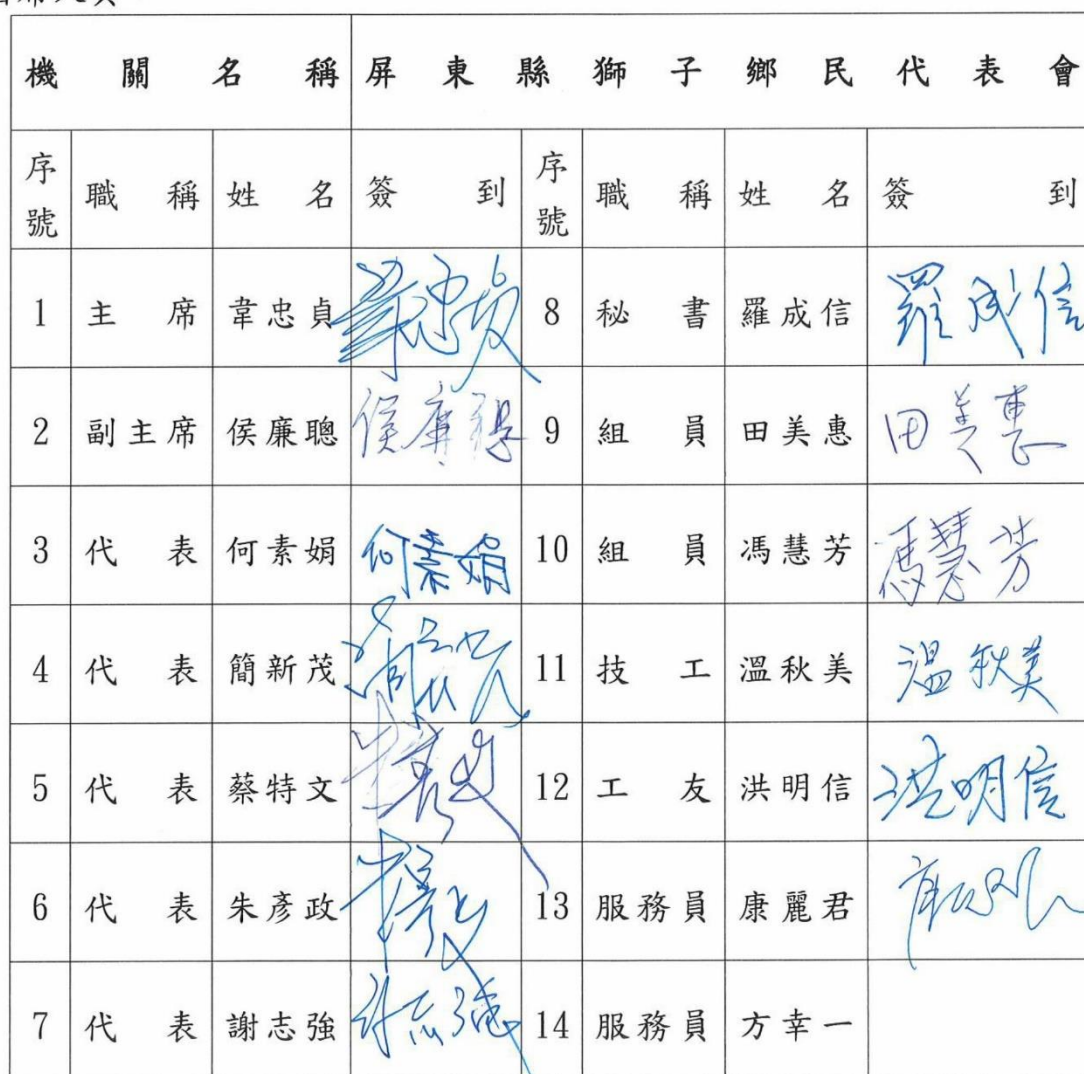 機關名稱 屏東縣獅子鄉民代表會
序號 職稱 姓名 簽到 序號 職稱 姓名 簽到
1 主席 韋忠貞 韋忠貞 8 秘書 羅成信 羅成信
2 副主席 侯廉聰 侯廉聰 9 組員 田美惠 田美惠
3 代表 何素娟 何素娟 10 組員 馮慧芳 馮慧芳
4 代表 簡新茂 11 技工 溫秋美 温秋美
5 代表 蔡特文 12 工友 洪明信 洪明信
6 代表 朱彥政 13 服務員 康麗君
7 代表 謝志強 14 服務員 方幸一